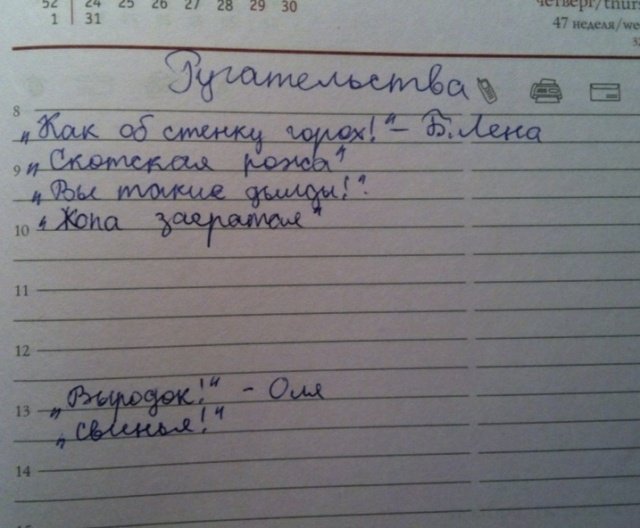 52 24 25 26 27 28 29 30
1 31
четверг/thurs
47 неделя/wee
Ругательства
8
„Как об стенку горох!“ – Б. Лена
9 „Скотская рожа“
„Вы такие дылды!“.
10 „Жопа засратая“
11
12
„Выродок!“ - Оля
13
„Свинья!“
14